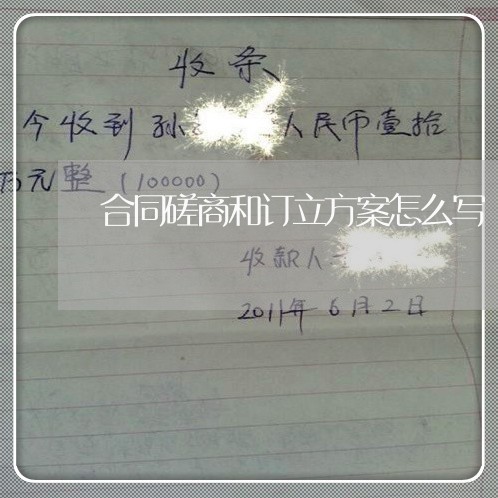 收条
今收到孙 人民币壹拾
万元整（100000）
合同磋商和订立方案怎么写
收款人
2011年6月2日